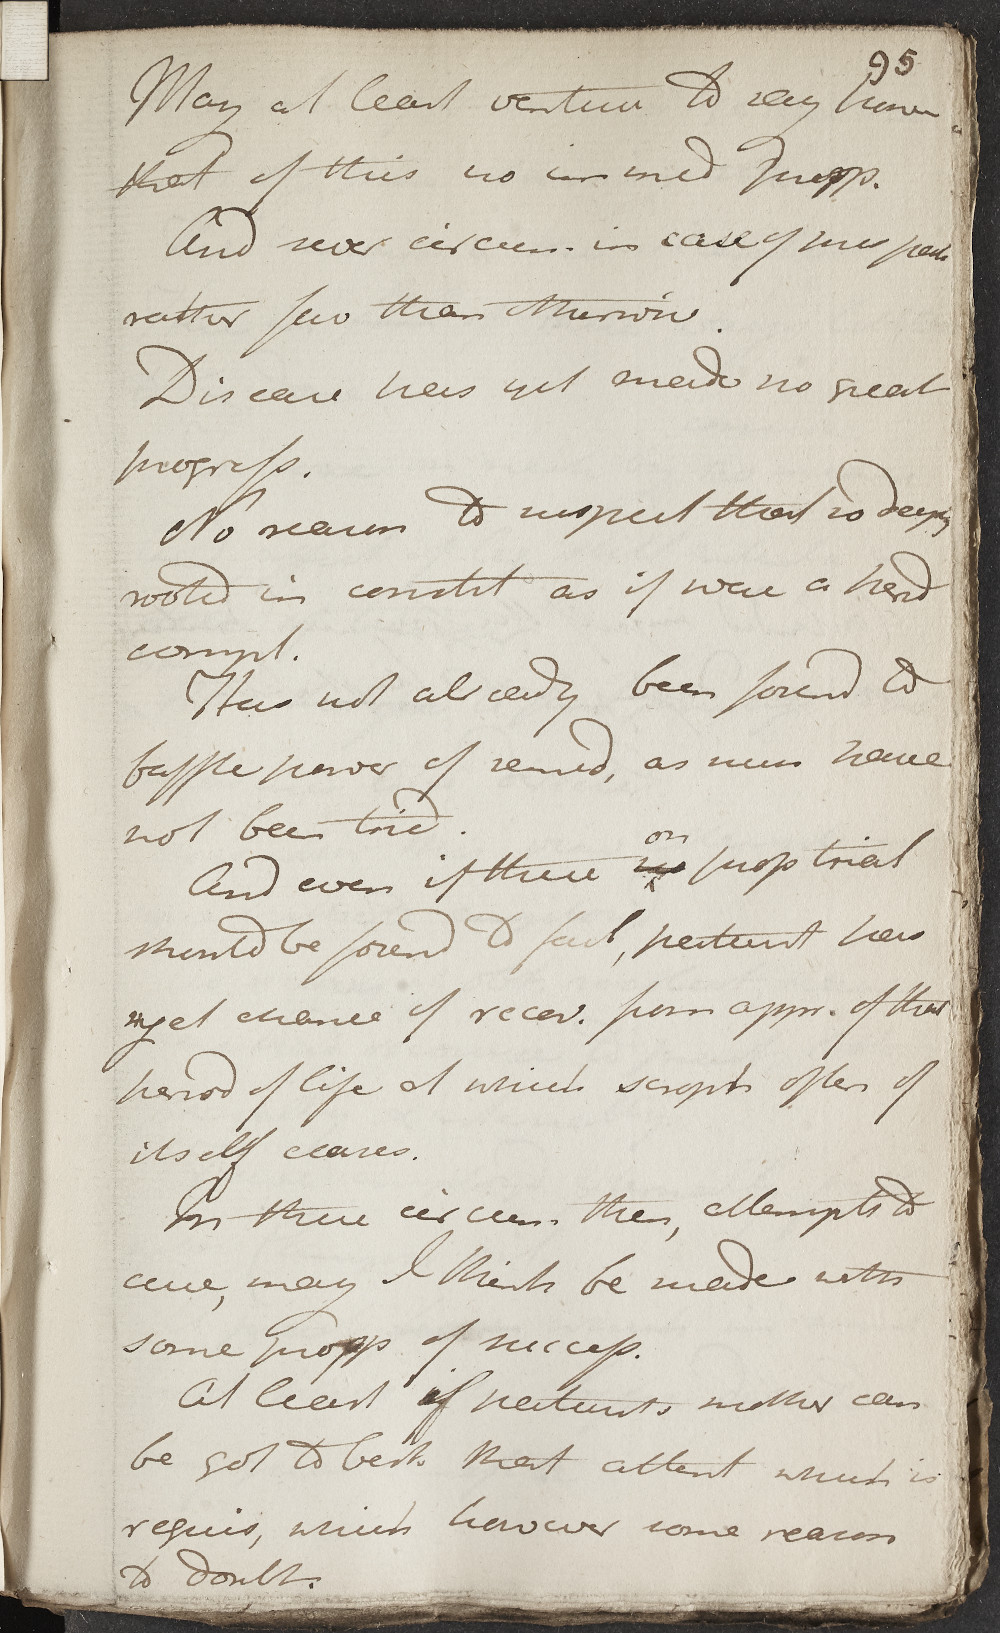 95
May at least venture to say howev
that of this no immed prosp.
And sever circum. in case of pres pati
rather fav than otherwise.
Disease has yet made no great
progress.
No reason to suspect that so deeply
rooted in constit as if were a hered
compl.
Has not already been found to
baffle power of remed, as num have
not been tried.
on
And even if these no prop trial
should be found to fail, patient has
yet chance of recov. from appr. of that
period of life at which scroph often of
itself ceases.
In these circum. then, attempts to
cure, may I think be made with
some prosp of success.
At least if patients mother can
be got to best. that attent which is
requis, which however some reason
to doubt.